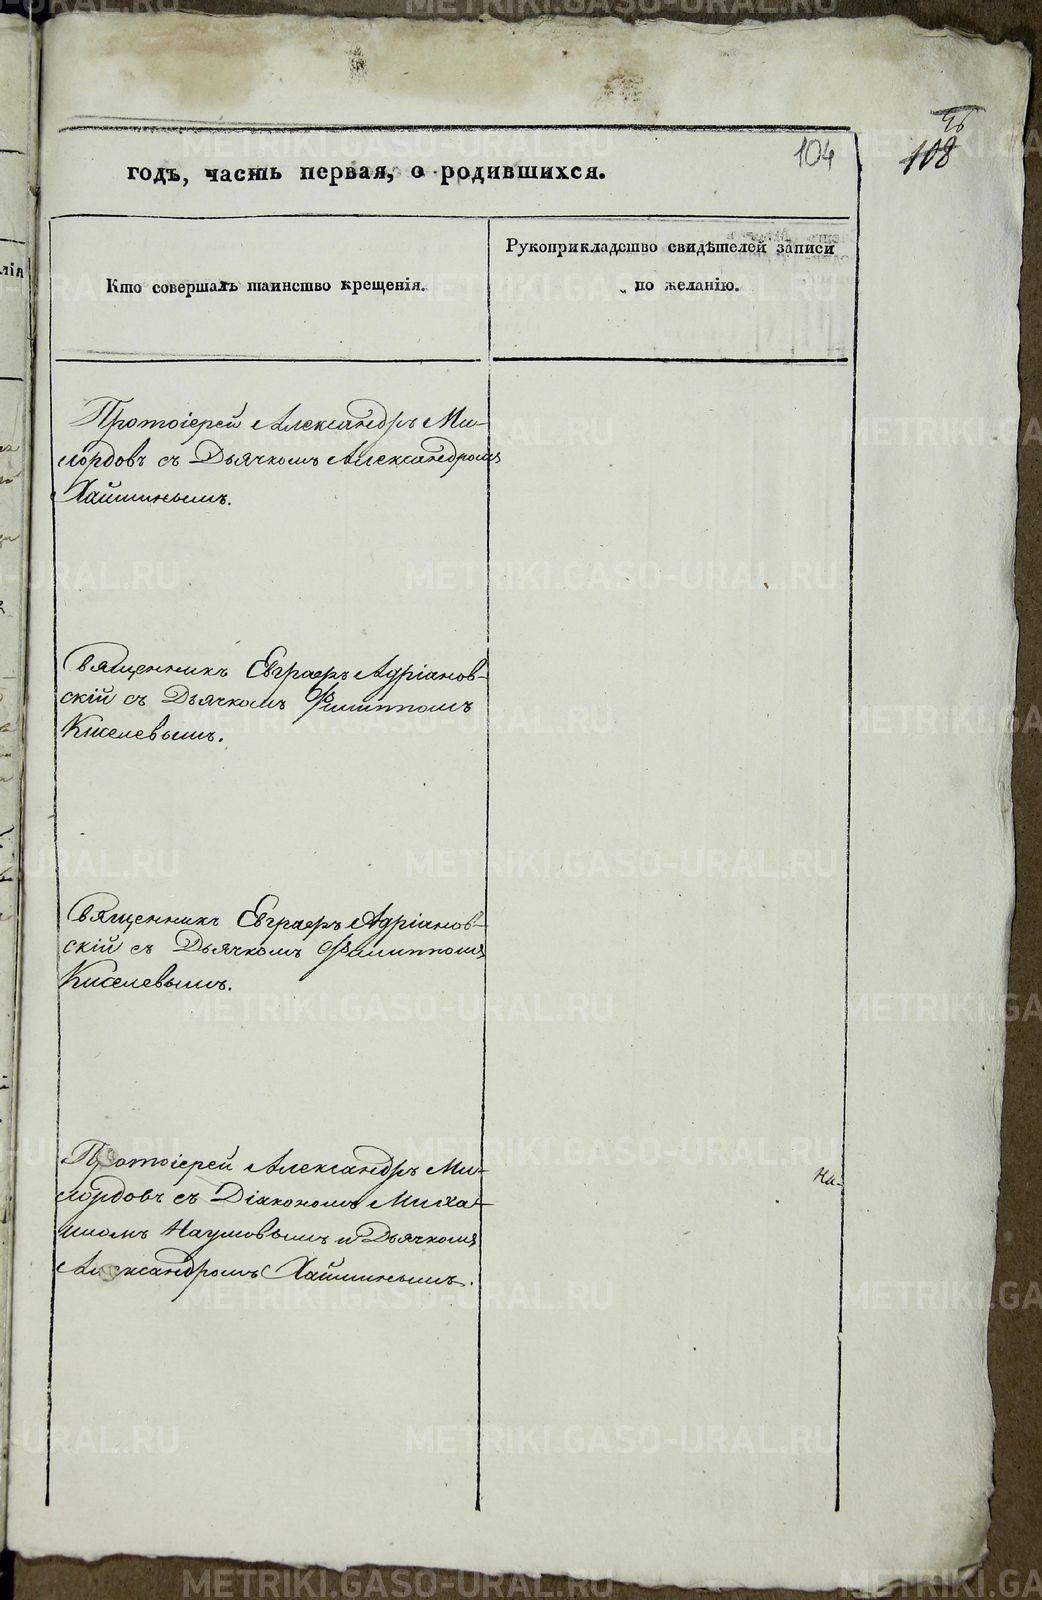 96
108
104
годъ, часть первая, о родившихся.
Кто совершалъ таинство крещенія.
Рукоприкладство свидѣтелей записи
по желанію.
Протоіерей Александръ Ми-
лордовъ съ Дьячкомъ Александромъ
Хайминымъ.
Священникъ Евграфъ Адріанов-
скій съ Дьячкомъ Филиппомъ
Киселевымъ.
Священникъ Евграфъ Адріанов-
скій съ Дьячкомъ Филиппомъ
Киселевымъ.
Протоіерей Александръ Ми-
лордовъ съ Діакономъ Миха-
иломъ Наумовымъ и Дьячкомъ
Александромъ Хайминымъ.
На-
METRIKI.GASO-URAL.RU